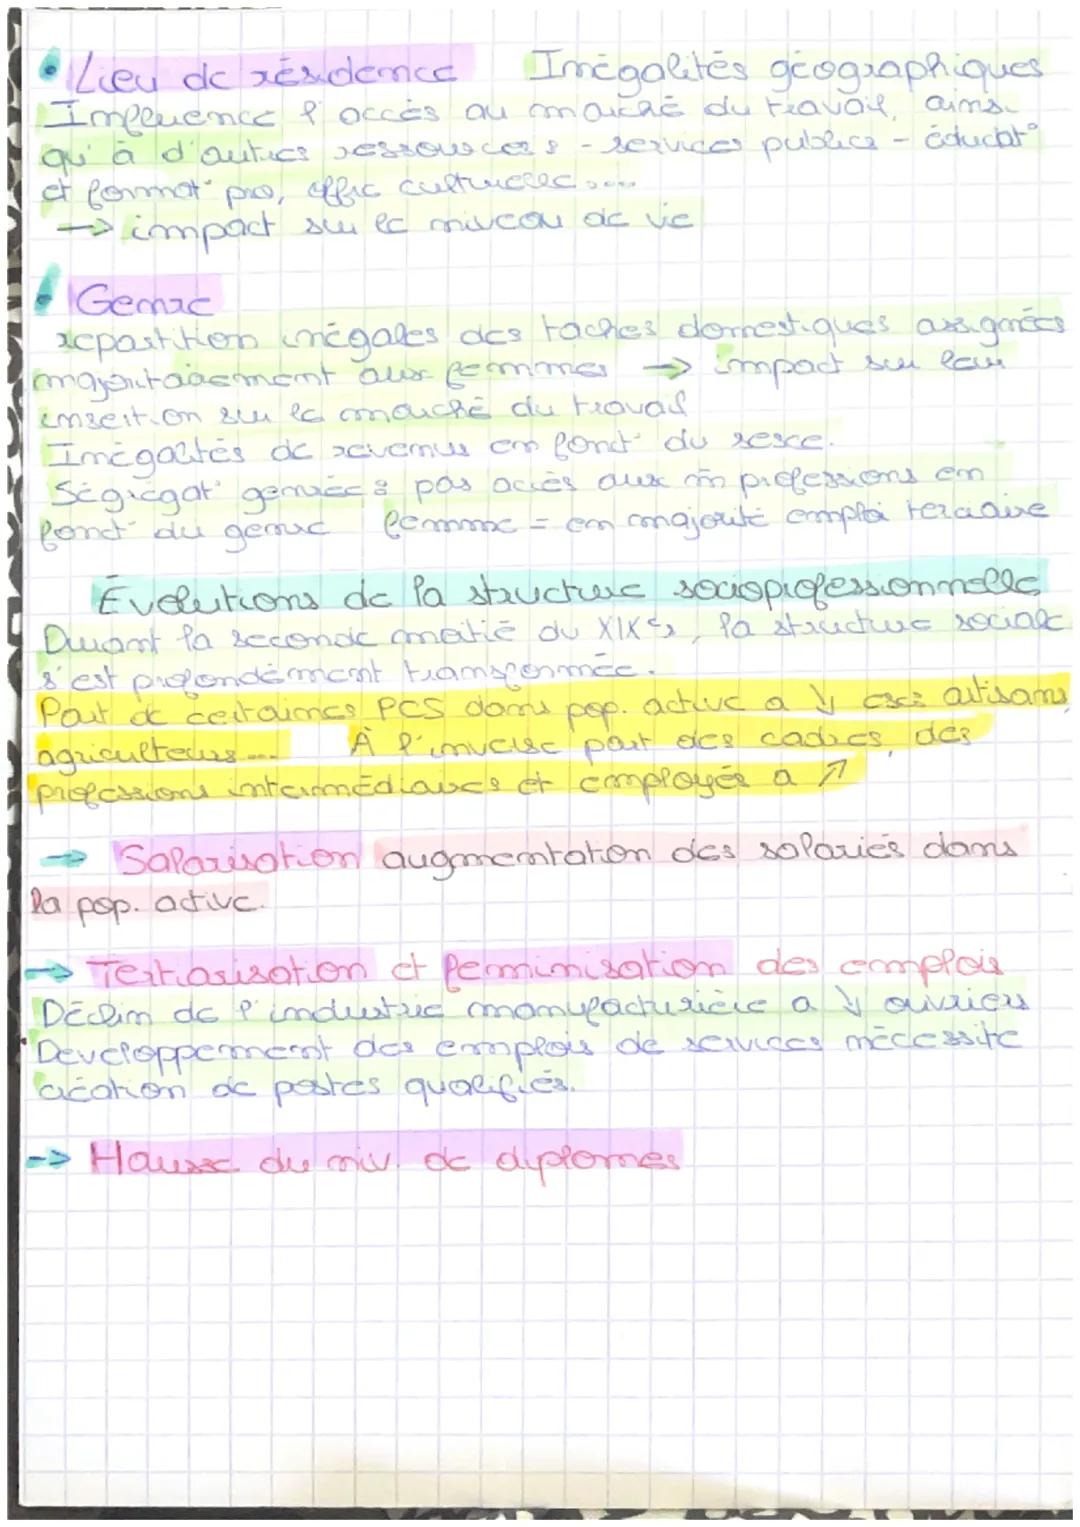 • Lieu de résidence Inégalités géographiques
Influence l'accès au marché du travail, ainsi
qu'à d'autres ressources : - services publics - éducat°
et format° pro, offre culturelle ....
→ impact sur le niveau de vie
• Genre
repartition inégales des taches domestiques assignées
majoritairement aux femmes → impact sur leur
insertion sur le marché du travail
Inégalités de revenus en fonct° du sexe.
Ségrégat° genrée : pas accès aux m̂ professions en
fonct° du genre femme = en majorité emploi terciaire
Évolutions de la structure socioprofessionnelle
Durant la seconde moitié du XIXe s, la structure sociale
s'est profondément transformée.
Part de certaines PCS dans pop. active a ↓ ex: artisans,
agriculteurs .... À l'inverse part des cadres, des
professions intermédiaires et employés a ↗
→ Salarisation augmentation des salariés dans
la pop. active.
→ Tertiarisation et féminisation des emplois
Déclin de l'industrie manufacturière a ↓ ouvriers
Developpement des emplois de services nécessite
création de postes qualifiés.
→ Hausse du niv. de diplomes